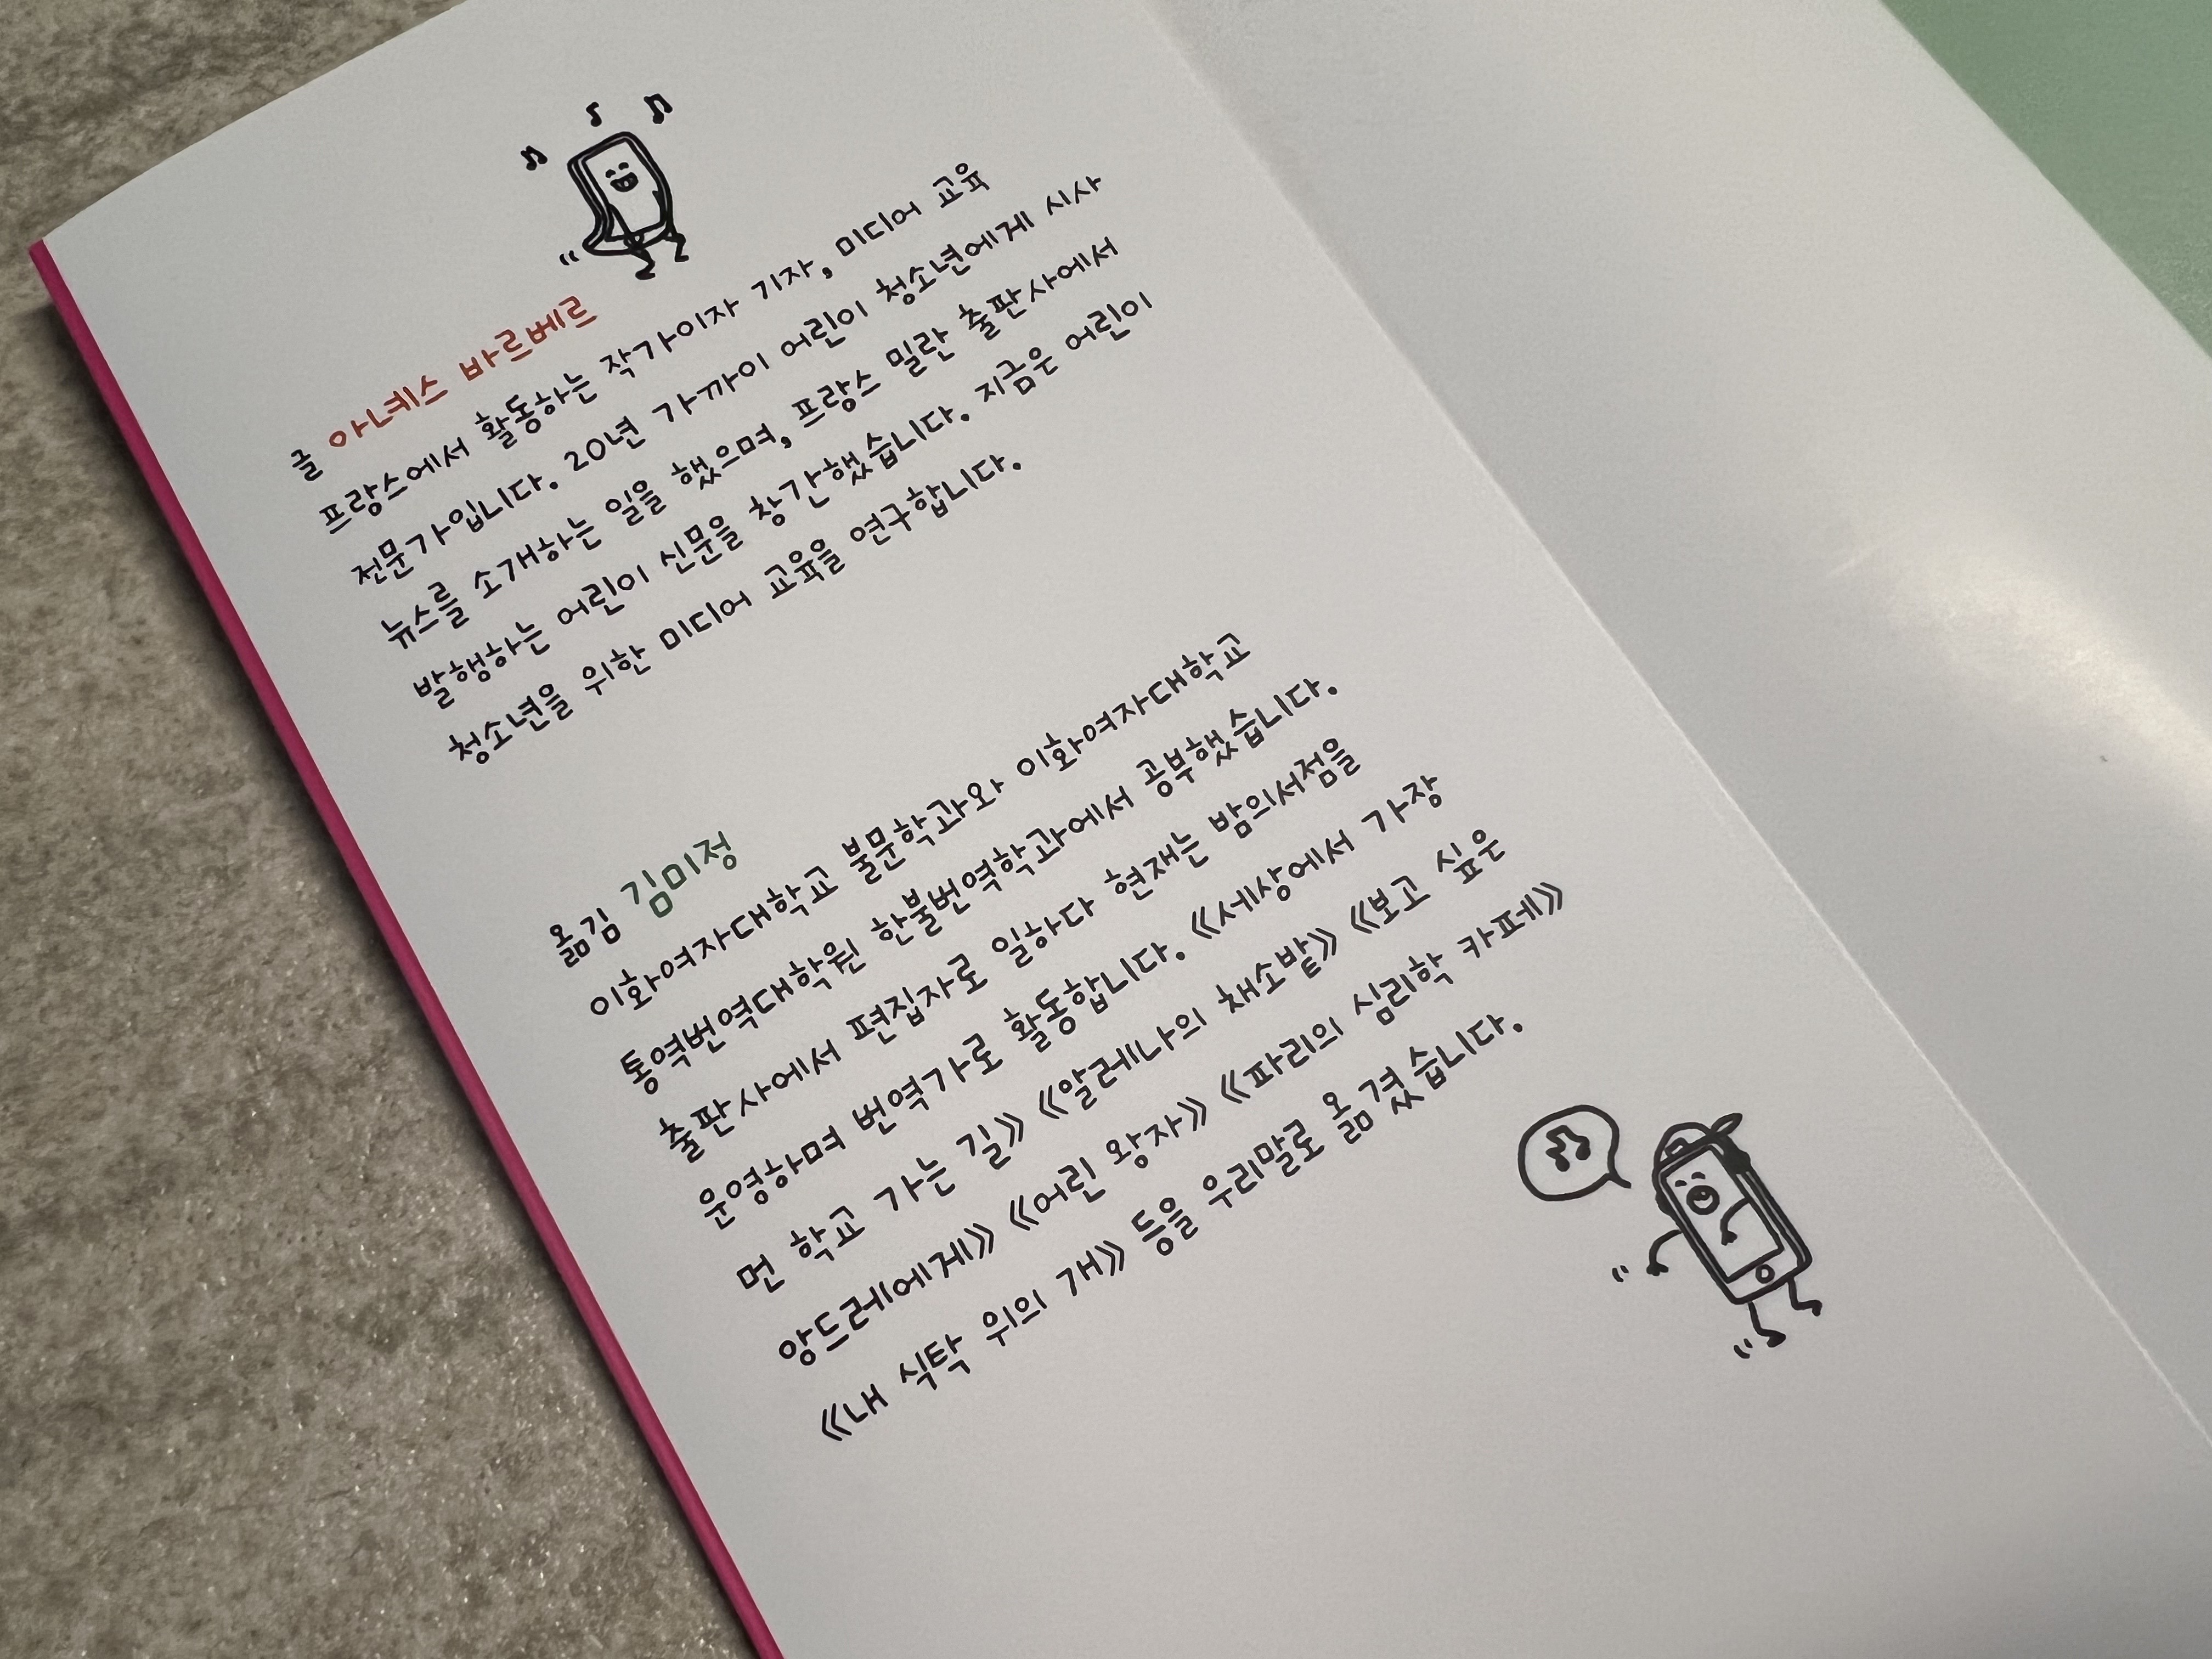 글 아녜스 바르베르
프랑스에서 활동하는 작가이자 기자, 미디어 교육
전문가입니다. 20년 가까이 어린이 청소년에게 시사
뉴스를 소개하는 일을 했으며, 프랑스 밀란 출판사에서
발행하는 어린이 신문을 창간했습니다. 지금은 어린이
청소년을 위한 미디어 교육을 연구합니다.
옮김 김미정
이화여자대학교 불문학과와 이화여자대학교
통역번역대학원 한불번역학과에서 공부했습니다.
출판사에서 편집자로 일하다 현재는 밤의서점을
운영하며 번역가로 활동합니다. 《세상에서 가장
먼 학교 가는 길》 《알레나의 채소밭》 《보고 싶은
앙드레에게》 《어린 왕자》 《파리의 심리학 카페》
《내 식탁 위의 개》 등을 우리말로 옮겼습니다.